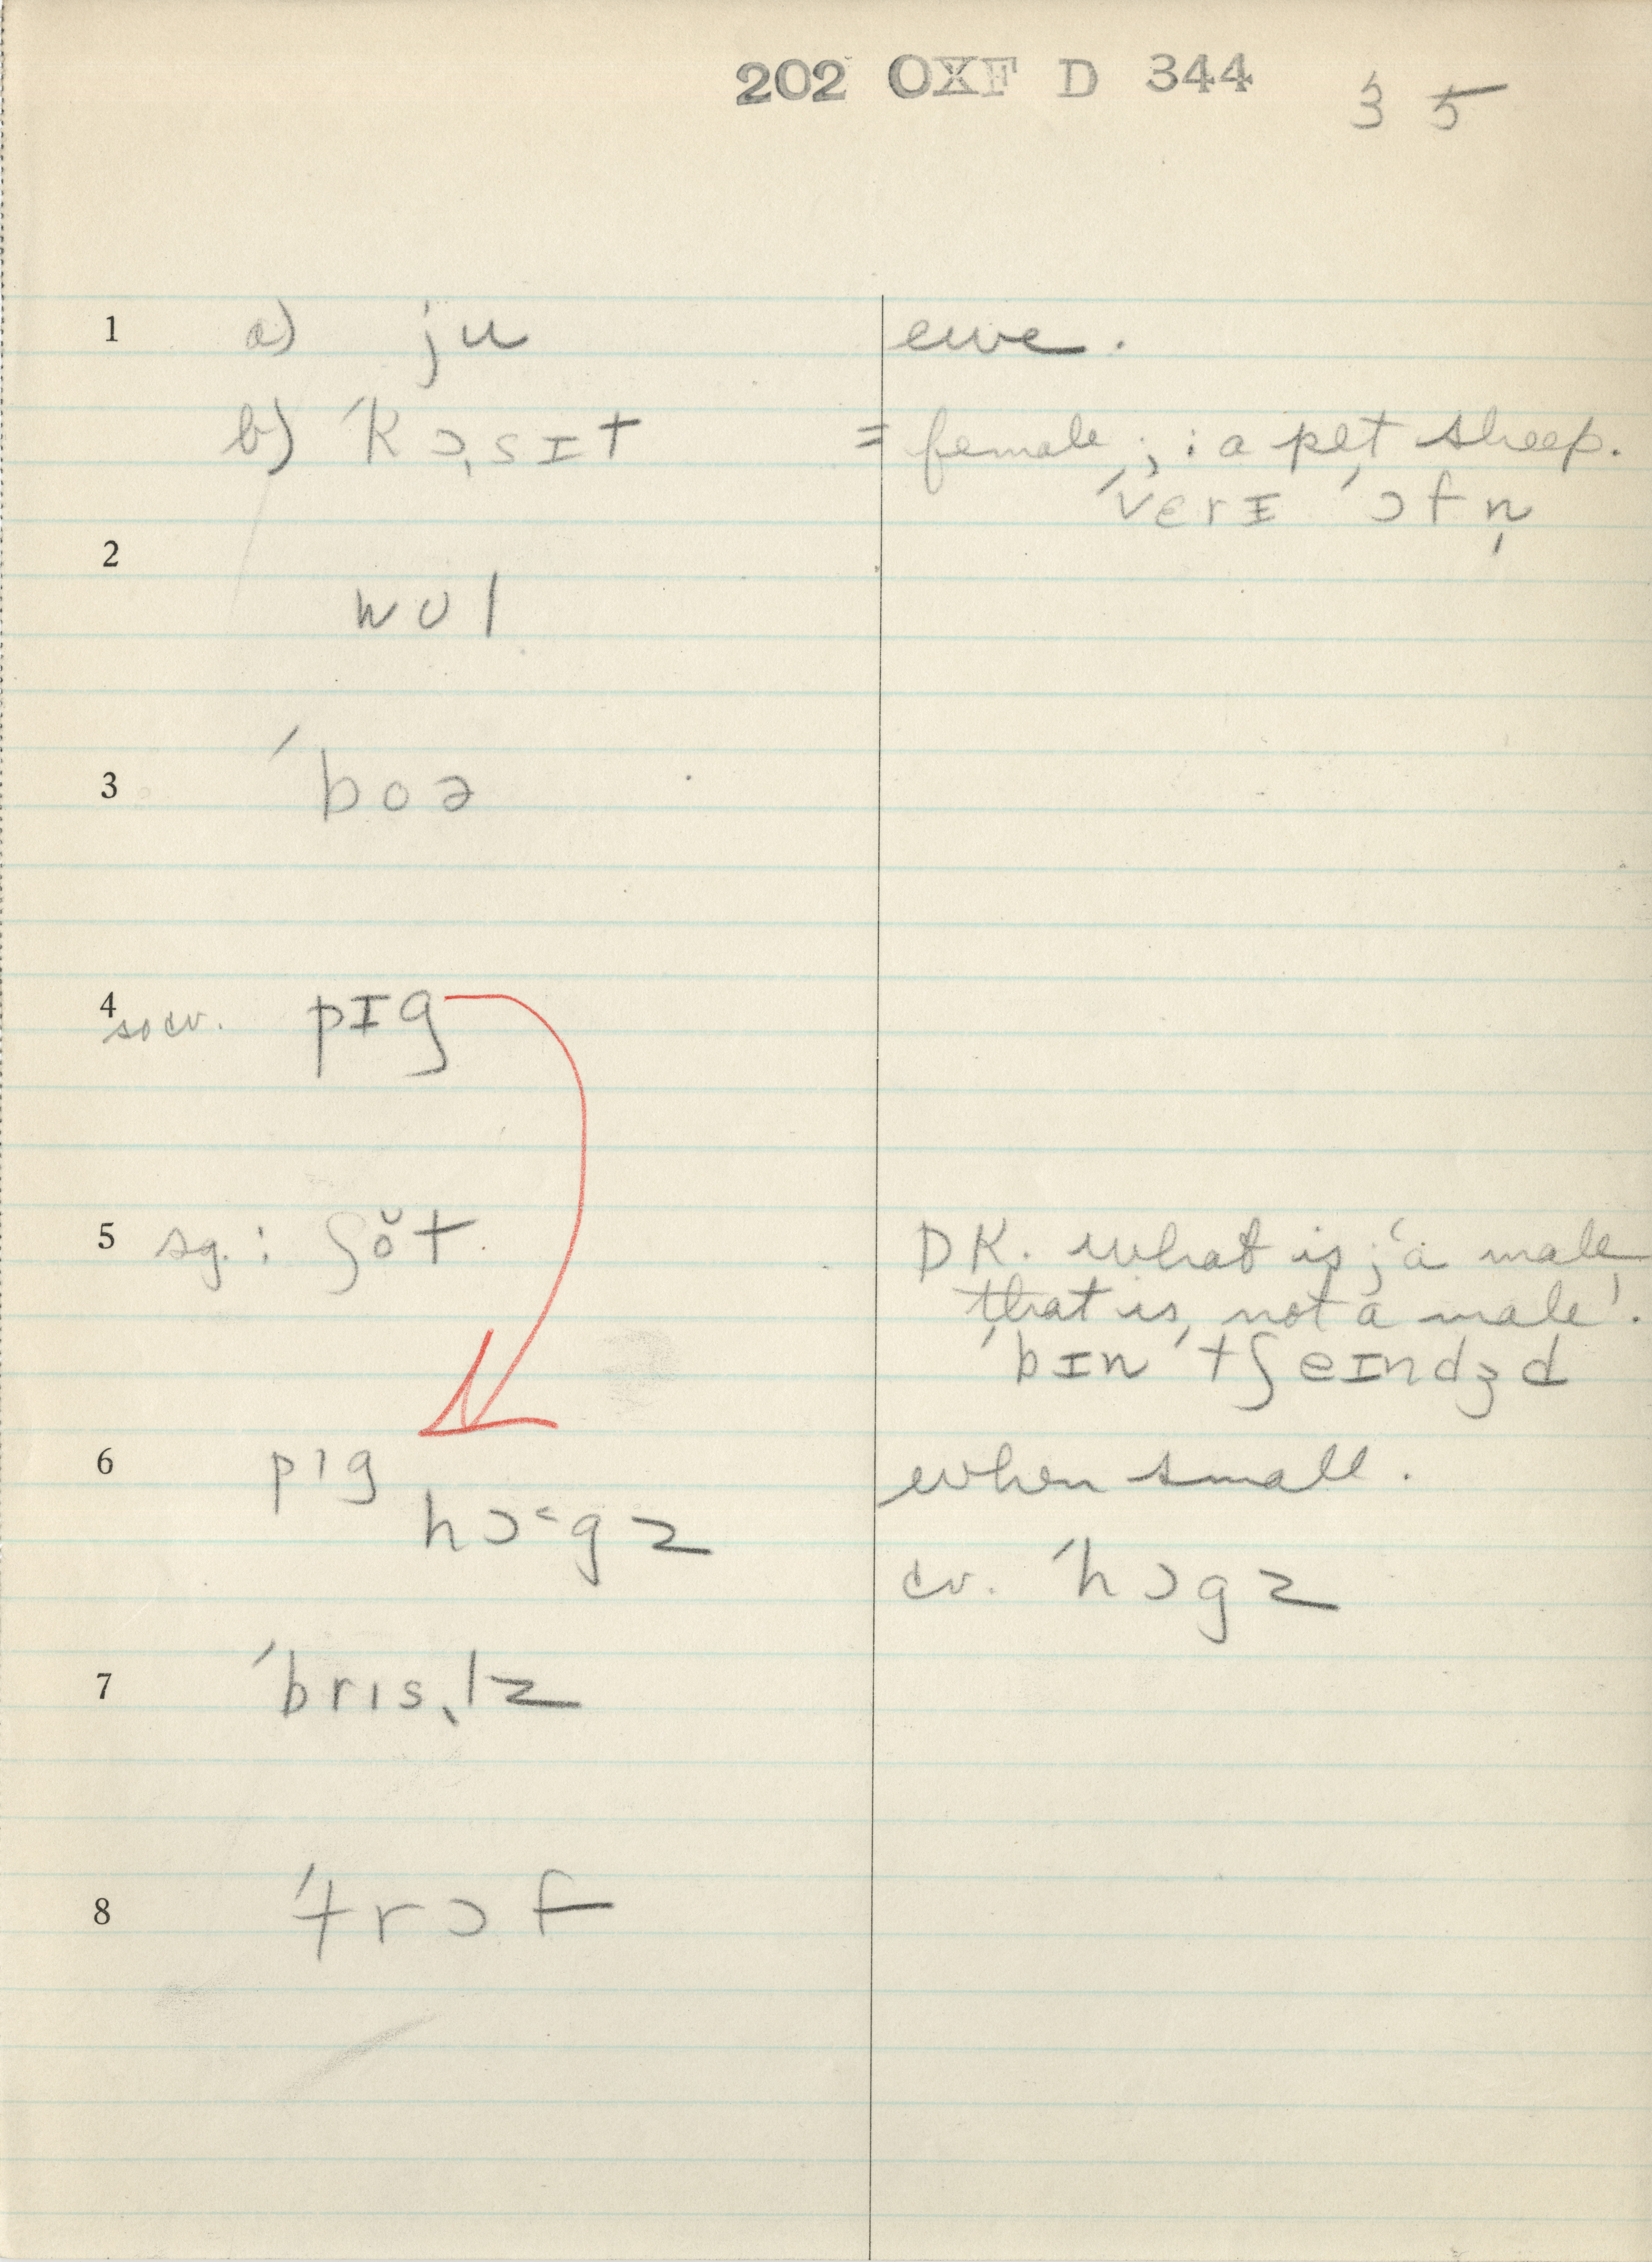 202 OXF D 344 35
1 a) ju ewe.
b) ˈkɔˌsɪt = female ; : a pet sheep.
ˈverɪ ˈɔfn̩
2
wul
3 ˈboə
4 sow. pɪg
5 sg. : ʃŏt. DK. what is 'a male
that is not a male'.
ˈbɪn ˈtʃeɪndʒd
6 pɪg when small.
hɔ˂gz cv. ˈhɔgz
7 ˈbrɪsˌlz
8 ˈtrɔf